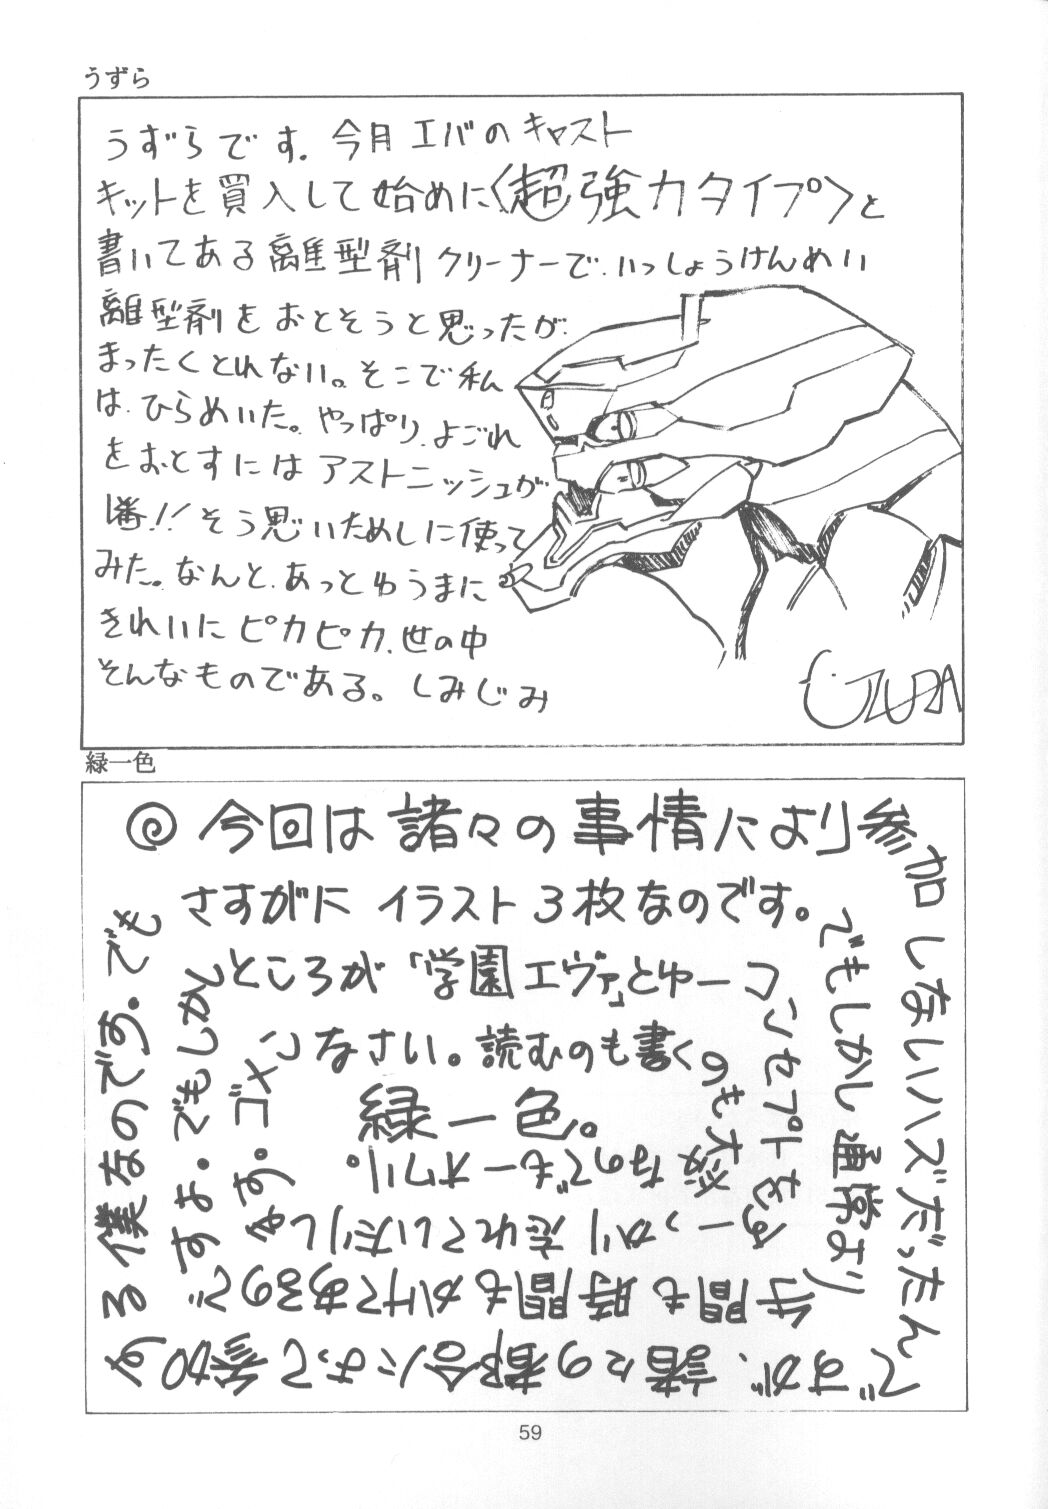 うずら
うずらです.今月エバのキャスト
キットを買入して始めに〈超強力タイプ〉と
書いてある離型剤クリーナーで.いっしょうけんめい
離型剤をおとそうと思ったが.
まったくとれない。そこで私
は.ひらめいた。やっぱり.よごれ
をおとすにはアストニッシュが
1番!!そう思いためしに使って
みた。なんと.あっとゆうまに
きれいにピカピカ.世の中
そんなものである。しみじみ
UZURA
緑一色
@今回は諸々の事情により参加
しないハズだったん
ですが、諸々の都合によって参加す
る僕なのです。でも
さすがにイラスト3枚なのです。
でもしかし通常より
手間も時間もかけてあるので
すよ。でもしかし
ところが「学園エヴァ」とゆーコ
ンセプトをす
ーっかり忘れていたりし
ます。ゴメ
ンなさい。読むのも書く
のも大変
なのでもーオワリ。
緑一色。
59